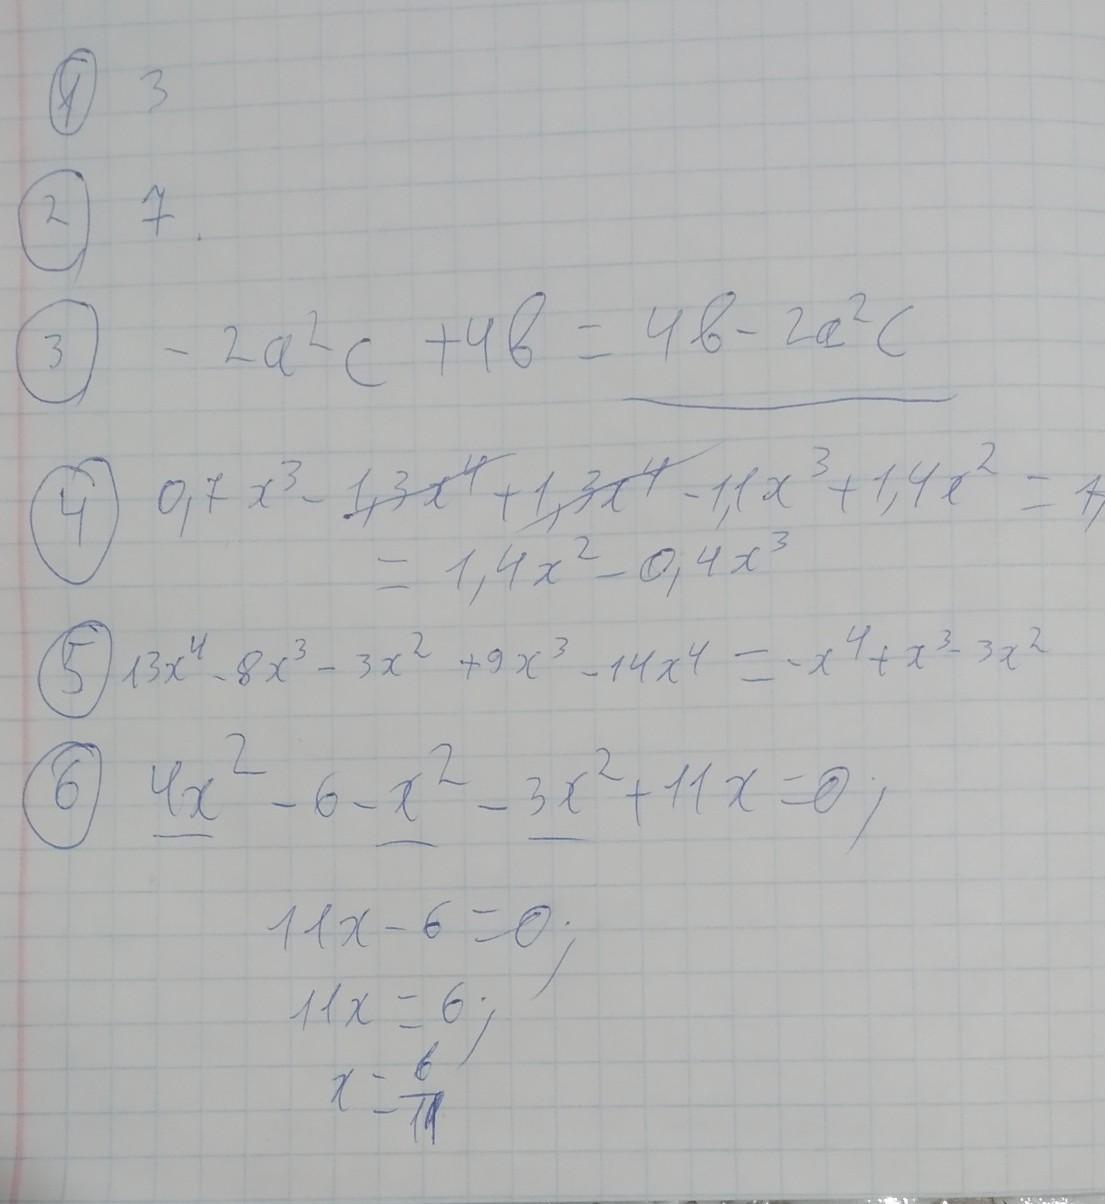 1 3
2 7.
3 - 2a²c + 4b = 4b - 2a²c
4 0,7x³ - 1,3x⁴ + 1,3x⁴ - 1,1x³ + 1,4x² = 1,
= 1,4x² - 0,4x³
5 13x⁴ - 8x³ - 3x² + 9x³ - 14x⁴ = -x⁴ + x³ - 3x²
6 4x² - 6 - x² - 3x² + 11x = 0;
11x - 6 = 0;
11x = 6;
x = 6/11